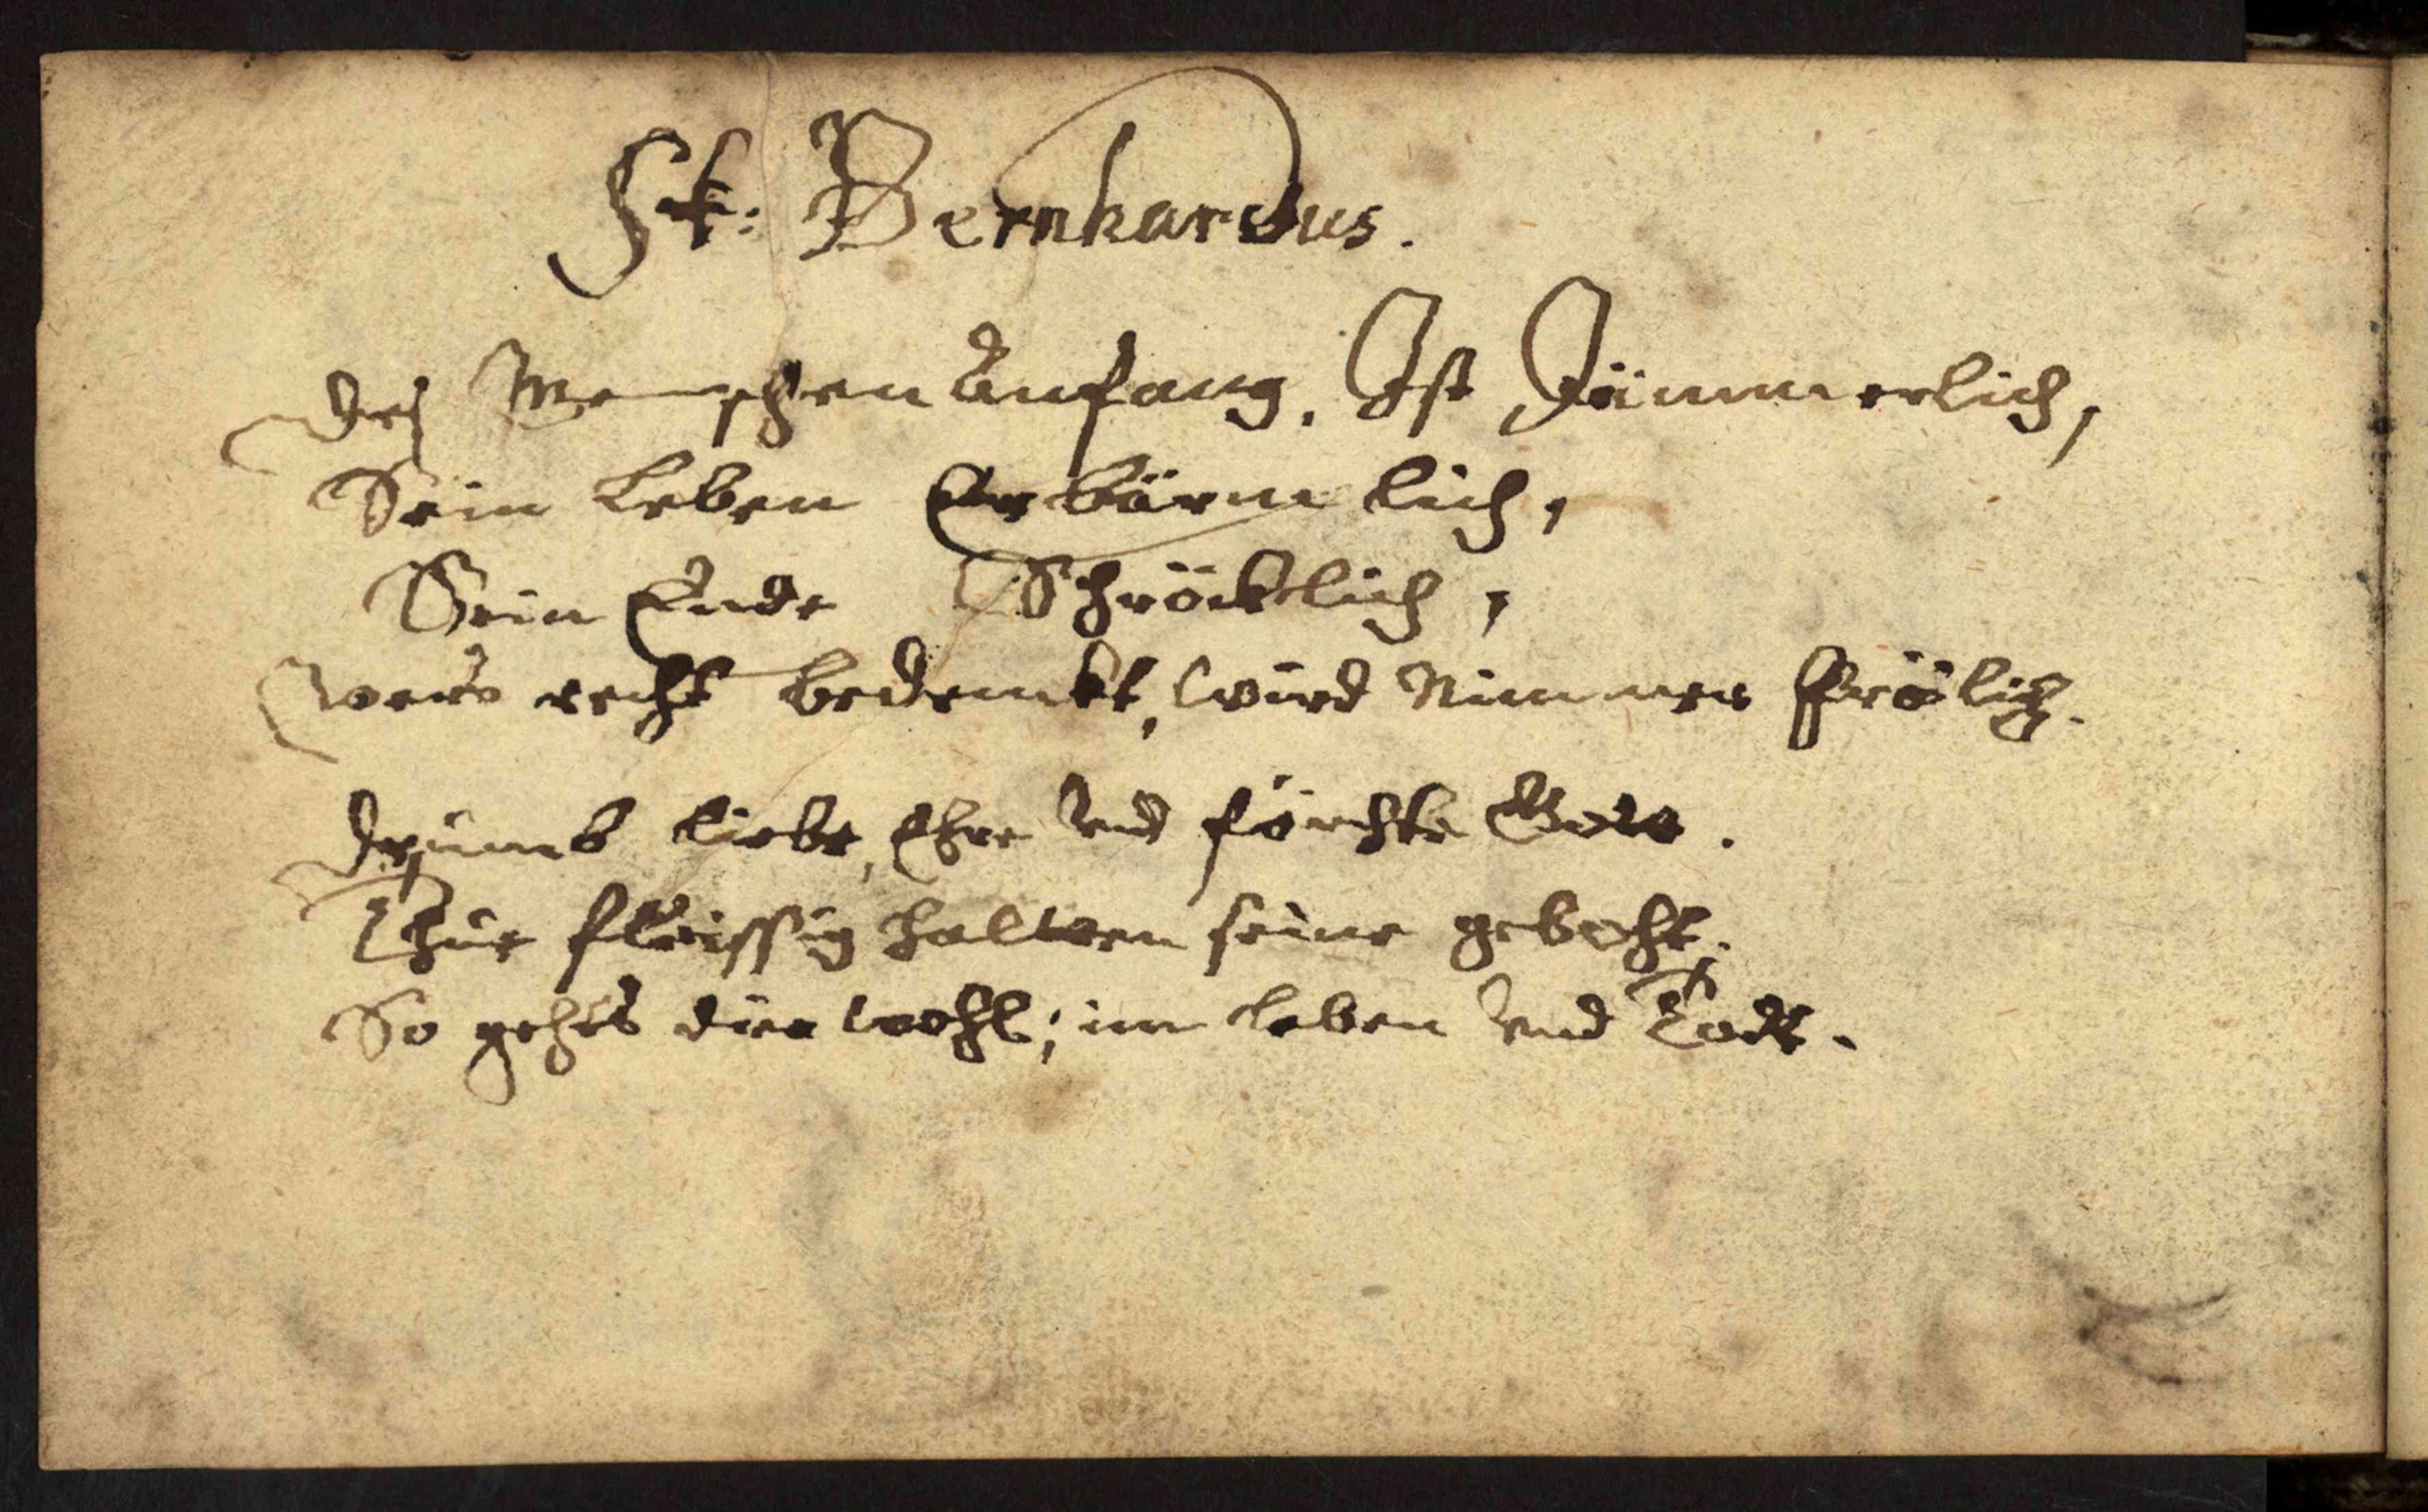 St: Bernhardus.
Des Menschen Anfang, Ist Jämmerlich,
Sein Leben Erbärmlich,
Sein Ende Schröcklich,
Wers recht bedenckt, wird Nimmer Frölich.
Drumb liebe, Ehre und förchte Gott.
Thue fleissig halten seine geboht.
So gehts dir wohl; im Leben und Todt.